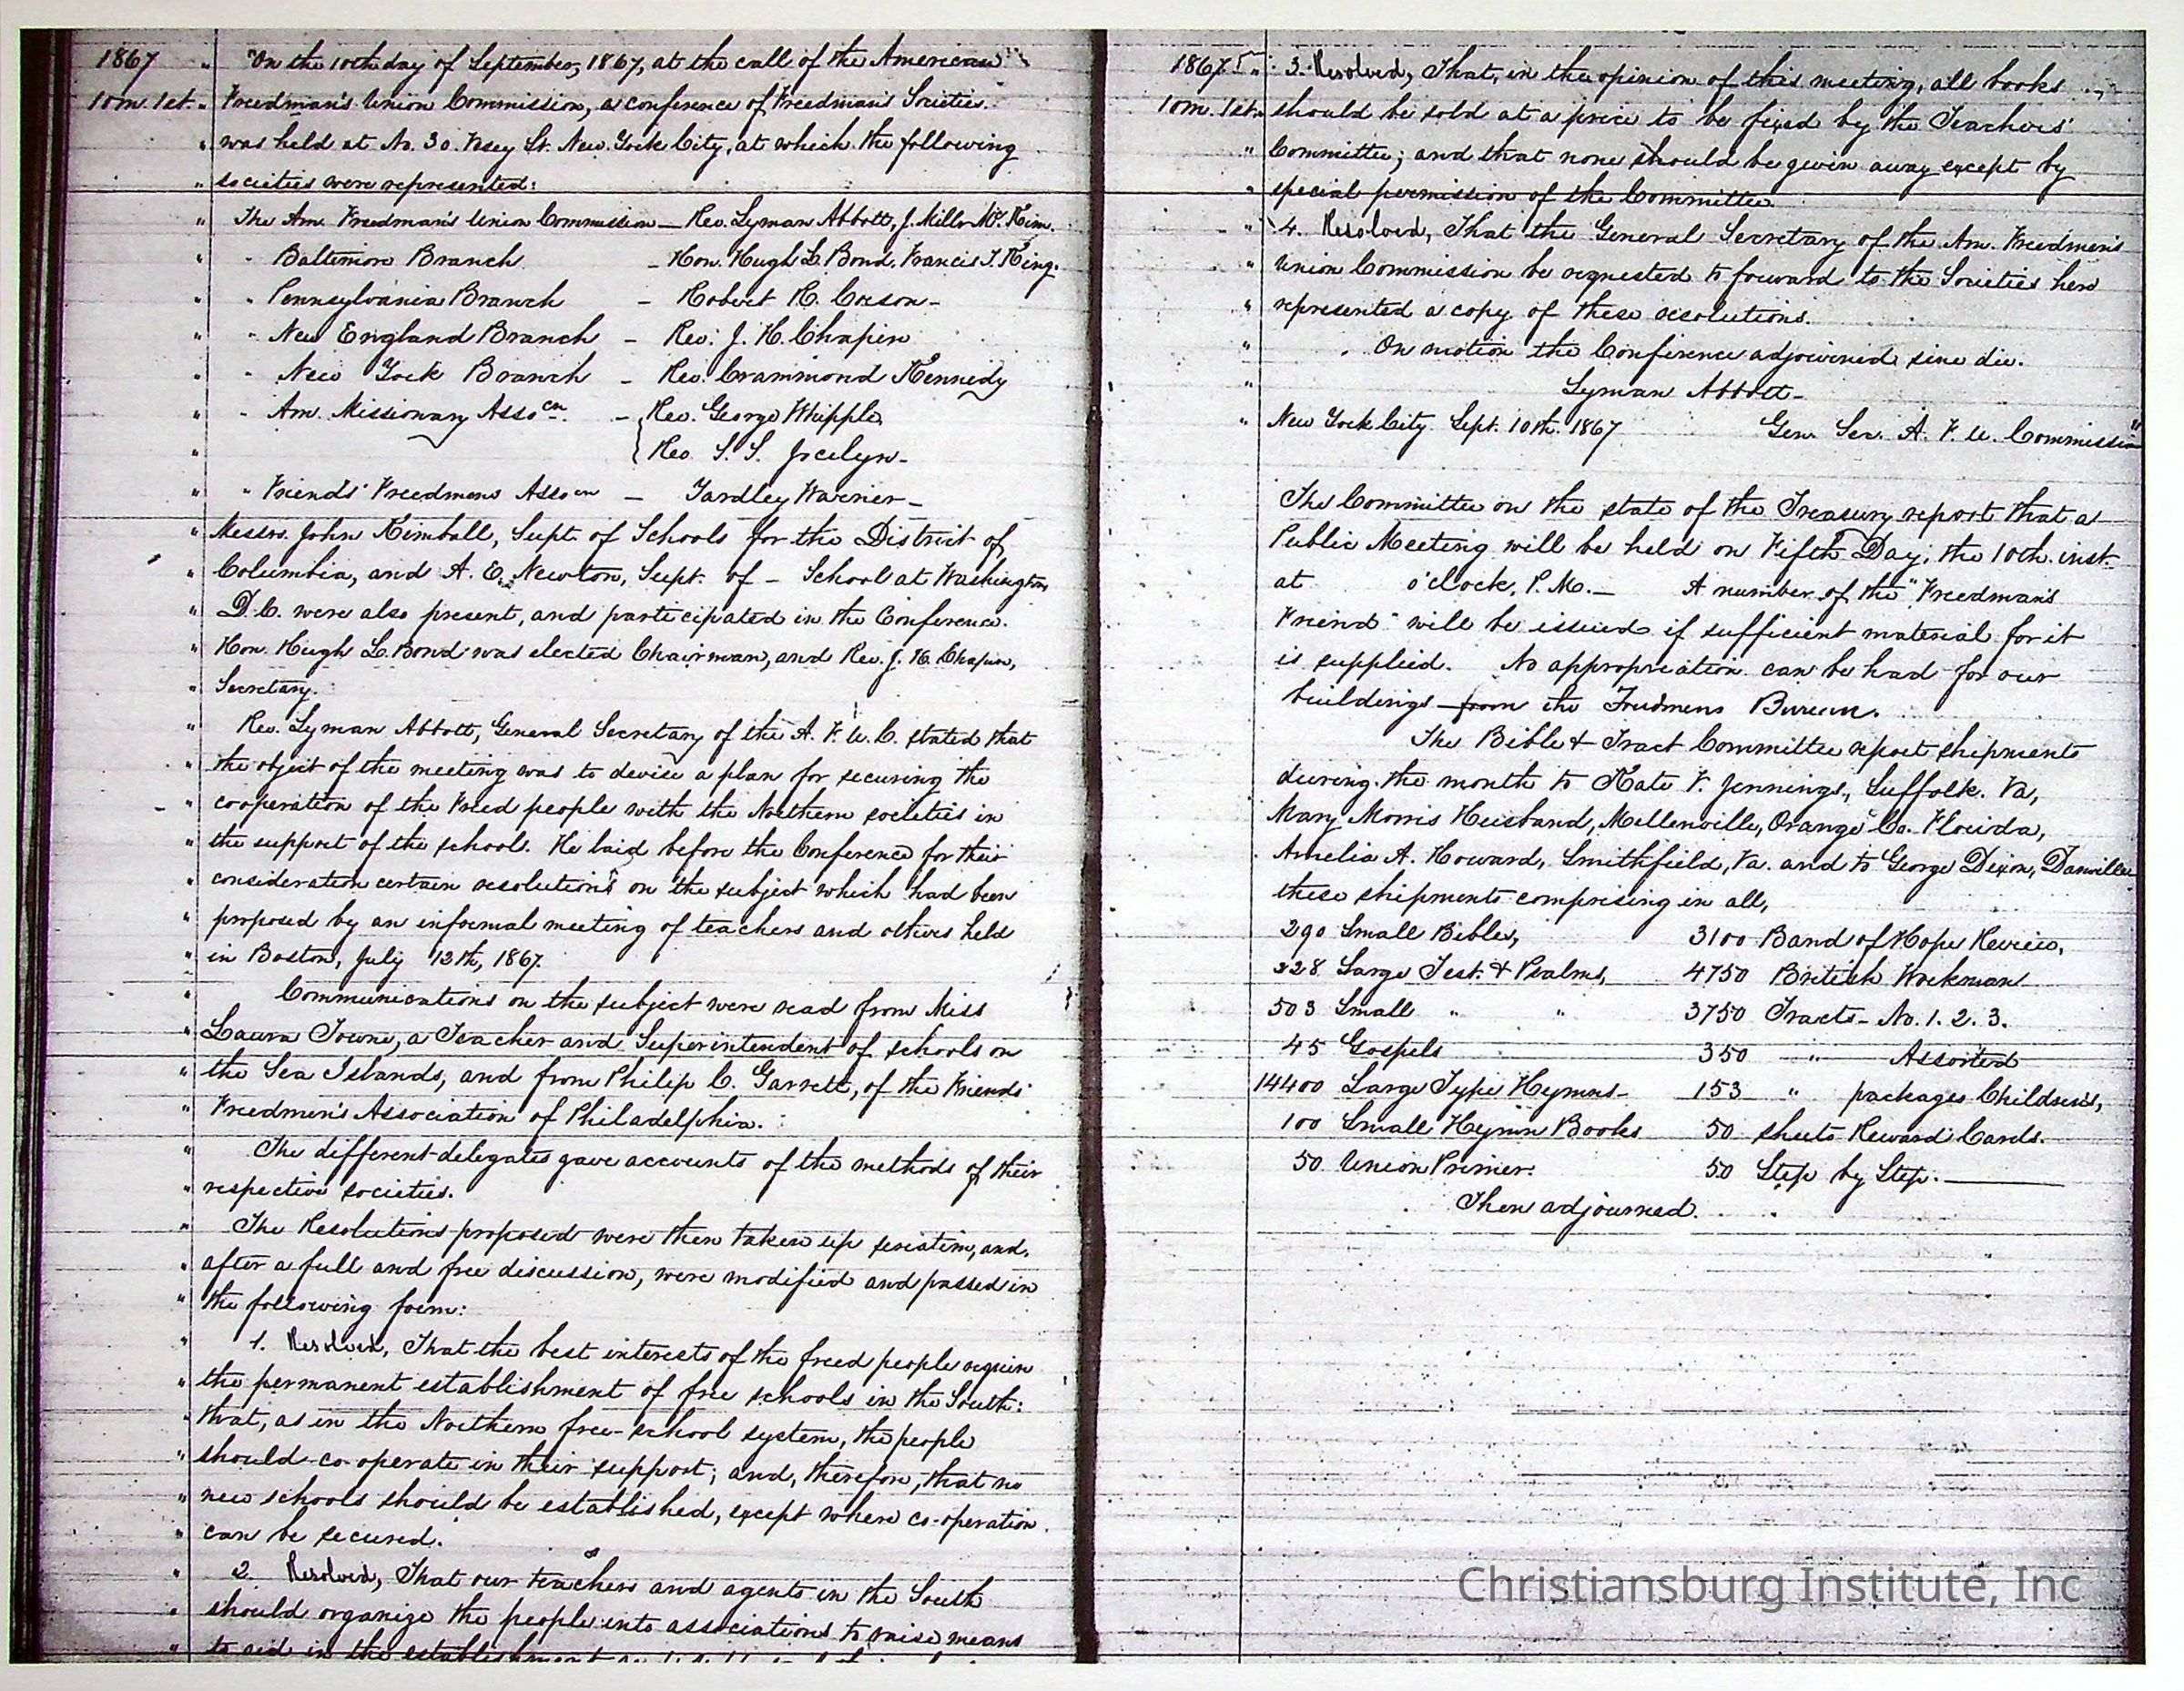 1867 " "On the 10th day of September, 1867, at the call of the American
10m. 1st. " Freedman's Union Commission, a conference of Freedman's Societies
" was held at No. 30. Vesey St. New. York City, at which the following
" societies were represented:
" The Am. Freedman's Union Commission — Rev. Lyman Abbott, J. Miller McKim.
" " Baltimore Branch – Hon. Hugh L. Bond, Francis T. King.
" " Pennsylvania Branch – Robert R. Corson –
" " New England Branch – Rev. J. H. Chapin
" " New York Branch – Rev. Crammond Kennedy
" " Am. Missionary Assocn. – { Rev. George Whipple,
" Rev. S. S. Jocelyn –
" " Friends' Freedmens Assocn – Yardley Warner –
" Messrs. John Kimball, Supt. of Schools for the District of
" Columbia, and A. E. Newton, Supt. of – School at Washington
" D.C. were also present, and participated in the Conference.
" Hon. Hugh L. Bond was elected Chairman, and Rev. J. H. Chapin,
" Secretary.
" Rev. Lyman Abbott, General Secretary of the A. F. U. C. stated that
" the object of the meeting was to devise a plan for securing the
" cooperation of the Freed people with the Northern societies in
" the support of the schools. He laid before the Conference for their
" consideration certain resolutions on the subject which had been
" proposed by an informal meeting of teachers and others held
" in Boston, July 12th, 1867.
" Communications on the subject were read from Miss
" Laura Towne, a Teacher and Superintendent of schools on
" the Sea Islands, and from Philip C. Garrett, of the Friends'
" Freedmen's Association of Philadelphia.
" The different delegates gave accounts of the methods of their
" respective societies.
" The Resolutions proposed were then taken up seriatim, and,
" after a full and free discussion, were modified and passed in
" the following form:
" 1. Resolved, That the best interests of the freed people require
" the permanent establishment of free schools in the South:
" that, as in the Northern free-school system, the people
" should co-operate in their support; and, therefore, that no
" new schools should be established, except where co-operation
" can be secured.
" 2. Resolved, That our teachers and agents in the South
" should organize the people into associations to raise means
" to aid in the establishment
1867 " 3. Resolved, That, in the opinion of this meeting, all books
10m. 1st. " should be sold at a price to be fixed by the Teachers'
" Committee; and that none should be given away except by
" special permission of the Committee.
" 4. Resolved, That the General Secretary of the Am. Freedmen's
" Union Commission be requested to forward to the Societies here
" represented a copy of these resolutions.
" On motion the Conference adjourned sine die.
" Lyman Abbott –
" New York City Sept. 10th. 1867 Gen. Sec. A. F. U. Commission"
The Committee on the state of the Treasury report that a
Public Meeting will be held on Fifth Day, the 10th. inst.
at o'clock, P.M. — A number of the "Freedman's
Friend" will be issued if sufficient material for it
is supplied. No appropriation can be had for our
buildings from the Freedmens Bureau.
The Bible & Tract Committee report shipments
during the month to Kate F. Jennings, Suffolk. Va,
Mary Morris Husband, Mellenville, Orange Co. Florida,
Amelia A. Howard, Smithfield, Va. and to George Dixon, Danville
these shipments comprising in all,
290 Small Bibles, 3100 Band of Hope Review,
228 Large Test. & Psalms, 4750 British Workman
503 Small " " 3750 Tracts – No. 1. 2. 3.
45 Gospels 350 " Assorted
14400 Large Type Hymns – 153 " packages Children's,
100 Small Hymn Books 50 sheets Reward Cards.
50 Union Primer. 50 Step by Step. —
Then adjourned.
Christiansburg Institute, Inc